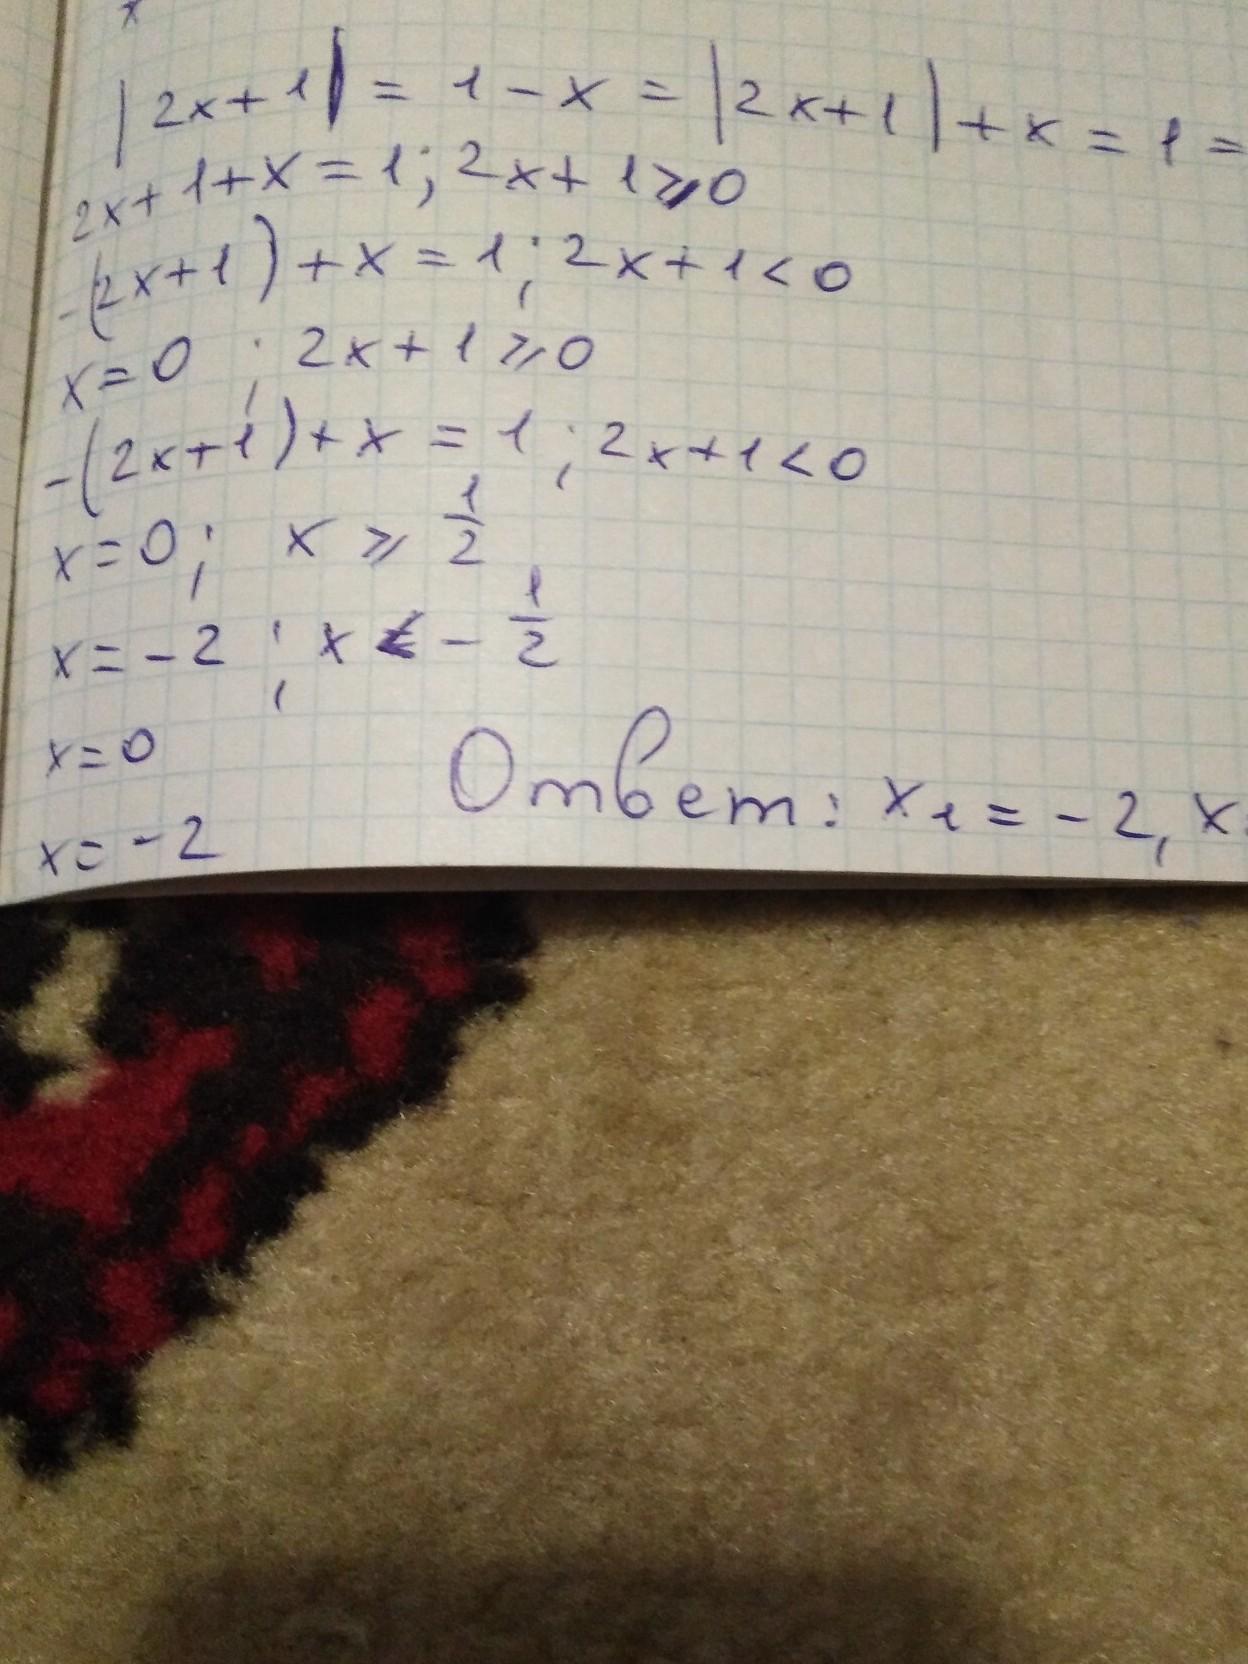 x
|2x+1| = 1-x = |2x+1|+x = 1 =
2x+1+x=1; 2x+1⩾0
-(2x+1)+x=1; 2x+1<0
x=0; 2x+1⩾0
-(2x+1)+x=1; 2x+1<0
x=0; x⩾1/2
x=-2; x<-1/2
x=0
x=-2
Ответ: x₁=-2, x